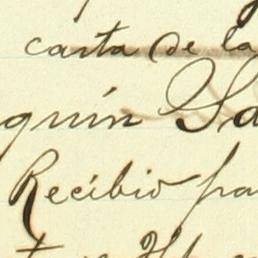 carta de la
quín Sa
Recibio pa